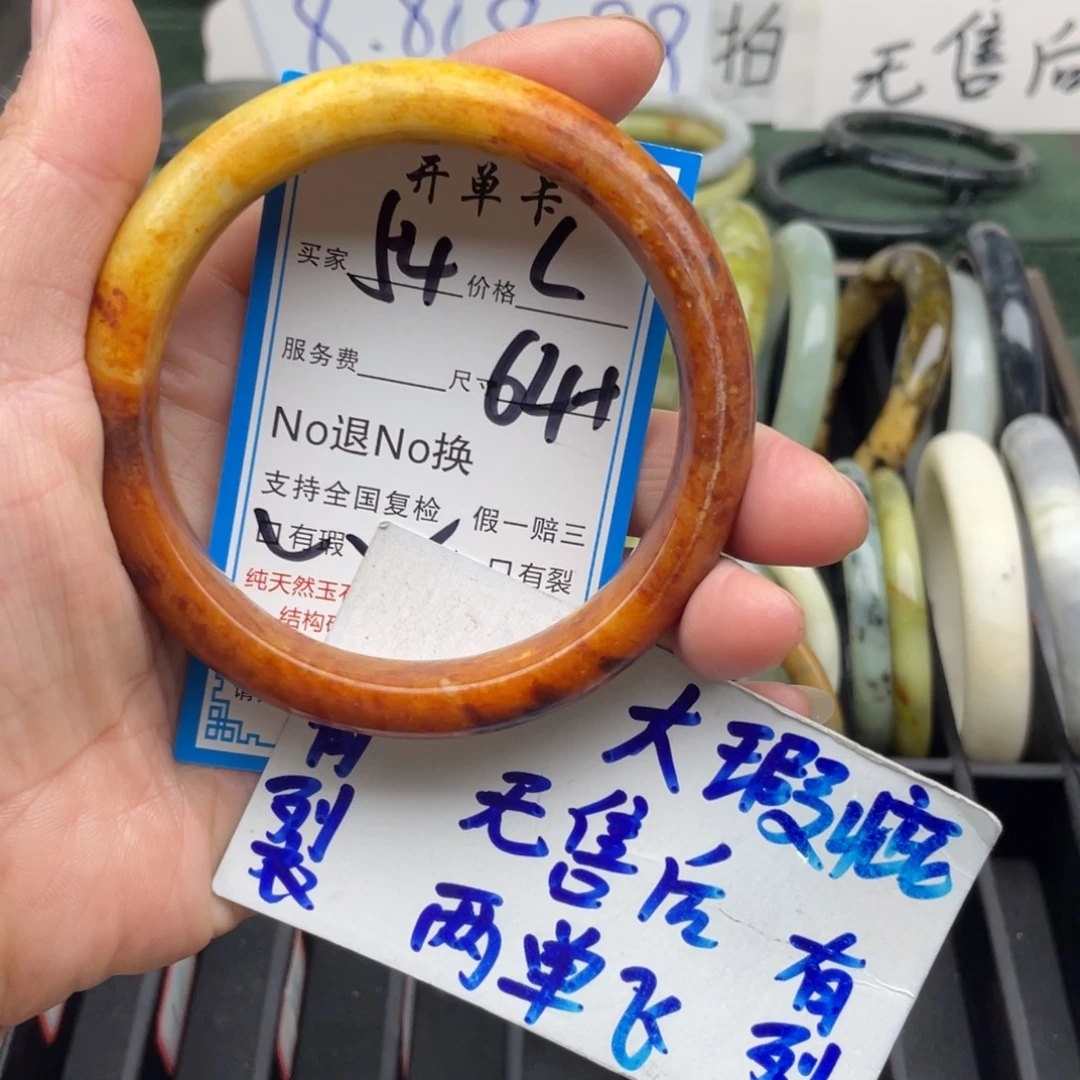 拍
无售后
开单卡
买家 54 价格 L
服务费 尺寸 64+
No退No换
支持全国复检 假一赔三
口有瑕 口有裂
纯天然玉石
结构
大瑕疵
无售后
两单飞
有裂
有裂